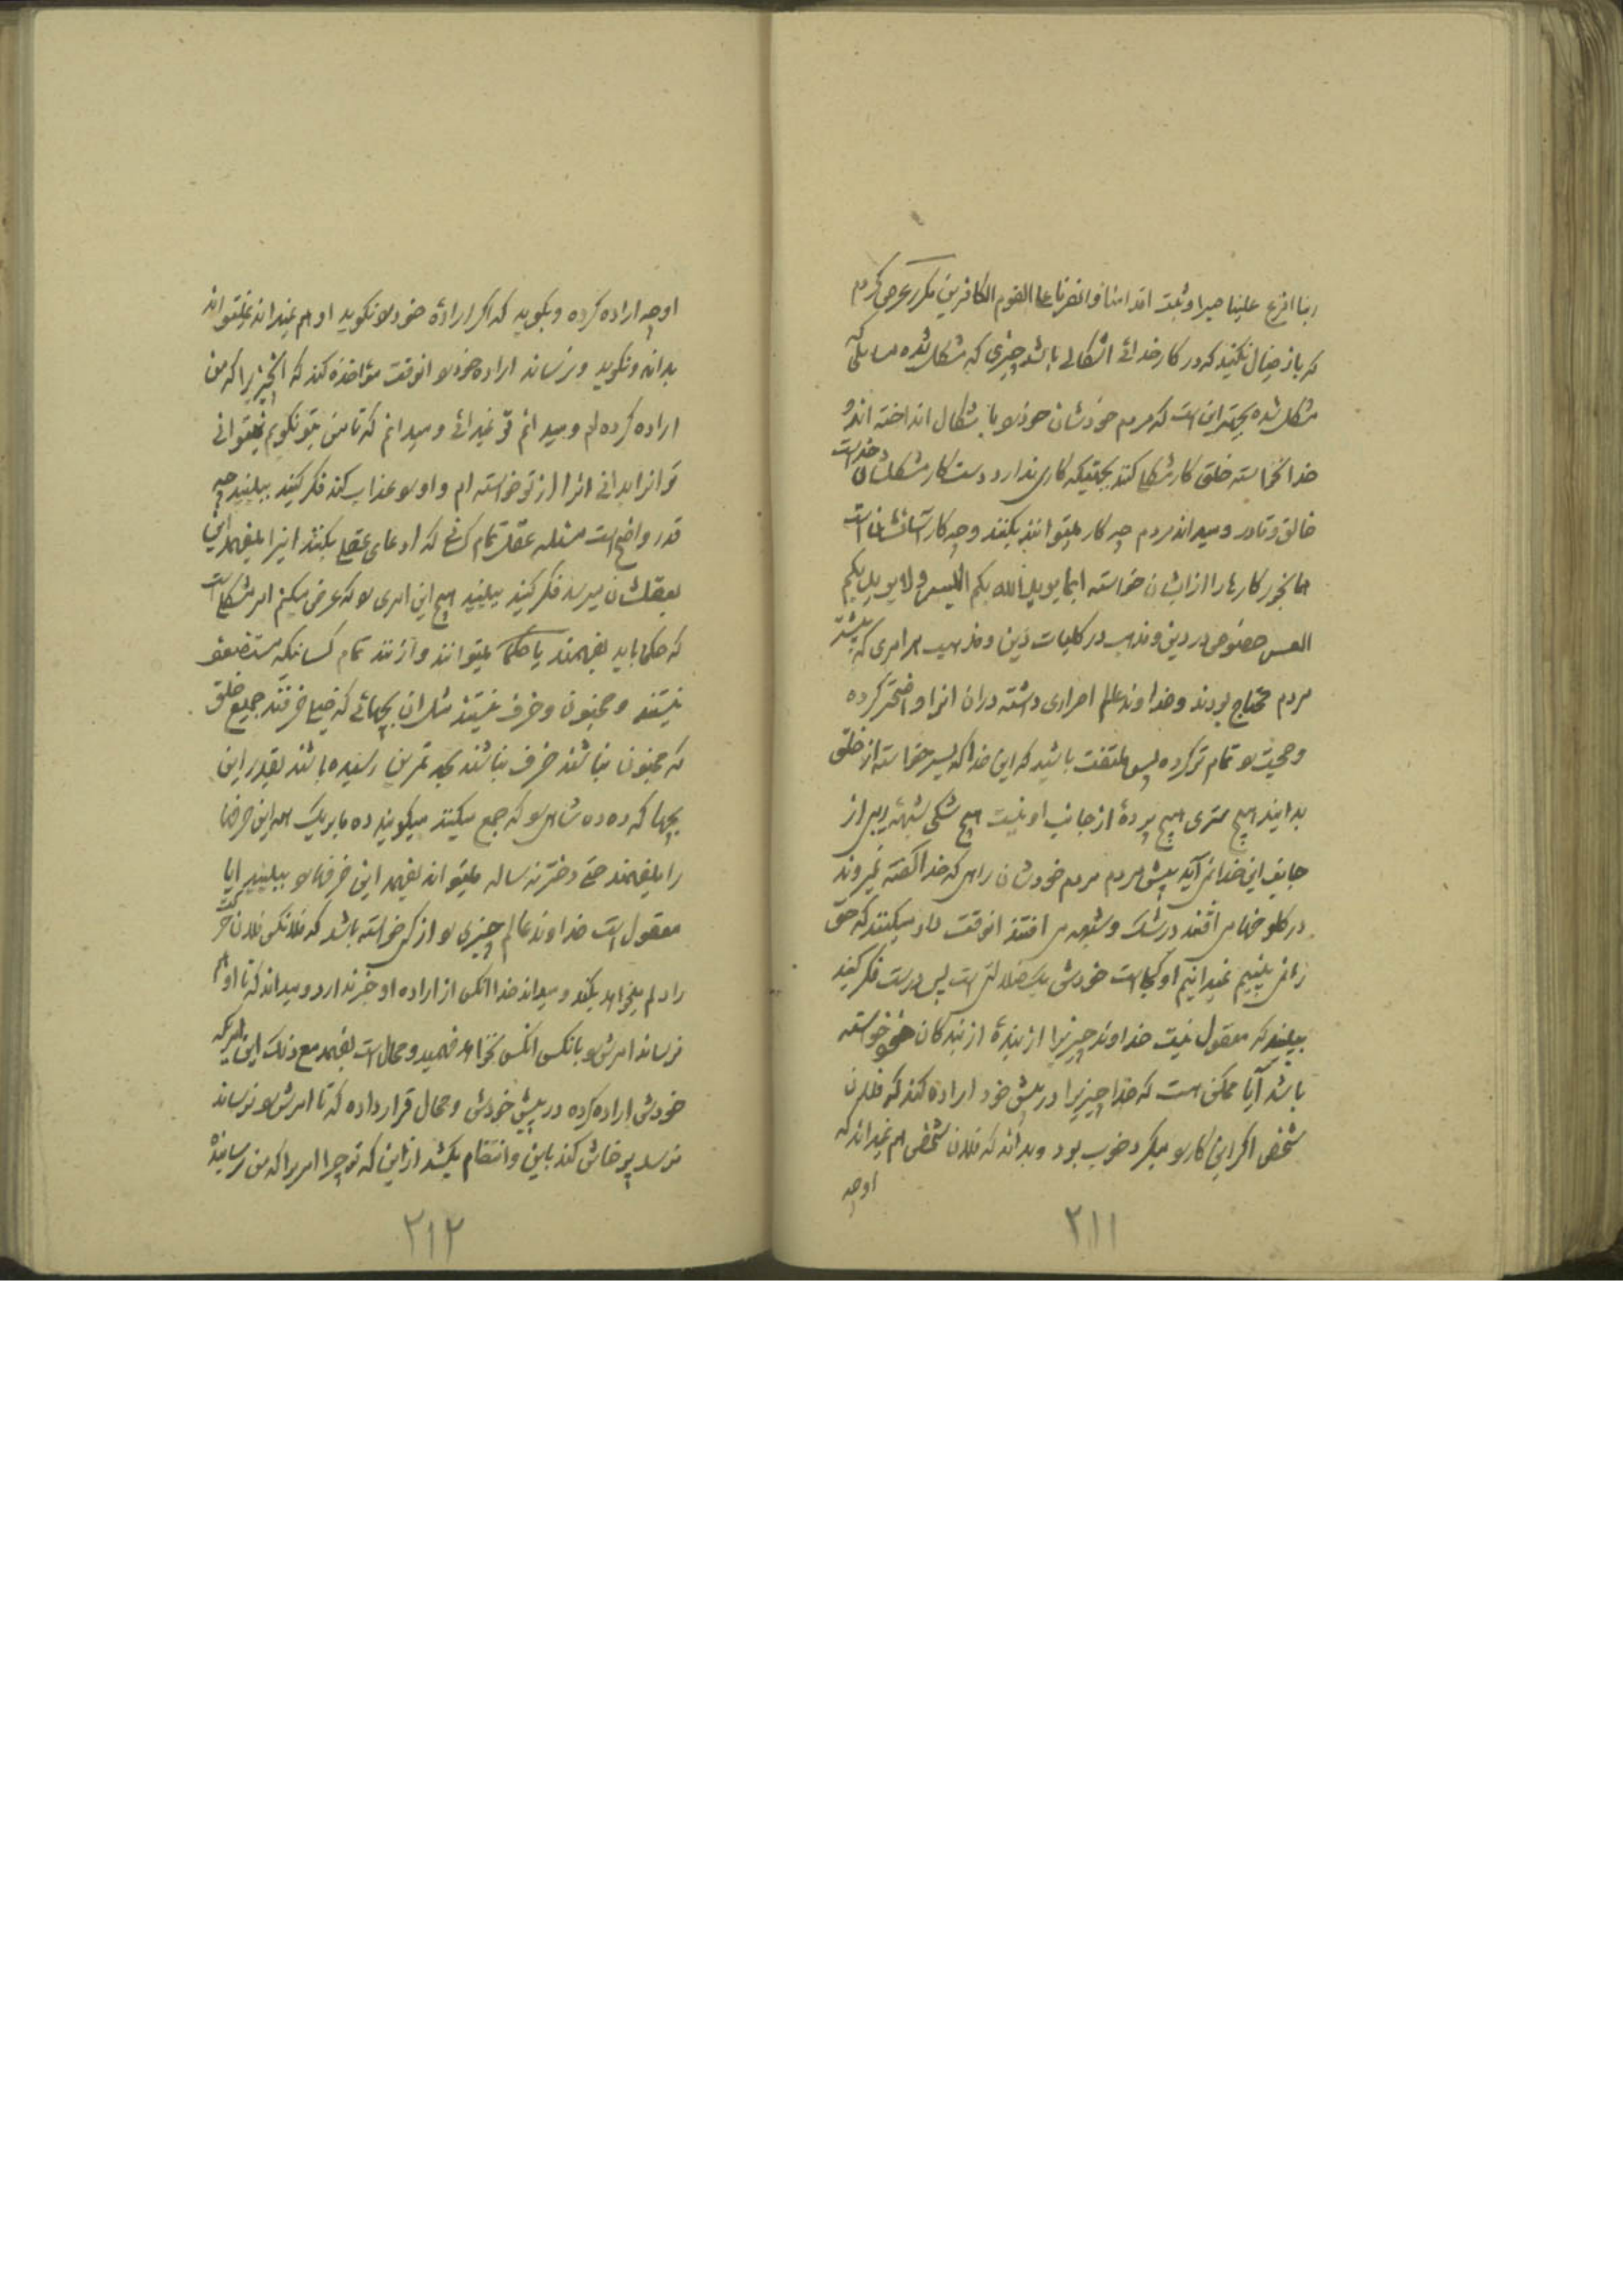 ربنا افرغ علینا صبرا و ثبت اقدامنا و انصرنا علی القوم الکافرین مکرر عرض کردم
که باز خیال نکنید که در کار خدائی اشکالی باشد چیزی که مشکل شده مسایلی که
مشکل شده بجهت این است که مردم خودشان خود را باشکال انداخته اند و
خدا نخواسته خلق کار مشکل کنند بجهتیکه کاری ندارد دست کار مشکلشان و خداست
خالق و قادر و میداند مردم چه کار میتوانند بکنند و چه کار آسانشان است
همانجور کارها را از ایشان خواسته انما یرید الله بکم الیسر و لا یرید بکم
العسر خصوص در دین و مذهب در کلیات دین و مذهب هر امری که بیشتر
مردم محتاج بودند و خداوند عالم اصراری داشته در ان انرا واضحتر کرده
و حجت را تمام تر کرده پس ملتفت باشید که این خدا که یسر خواسته از خلق
بدانید هیچ ستری هیچ پردهٔ از جانب او نیست هیچ شکی شبههٔ ریبی از
جانب این خدا نمی آید پیش مردم مردم خودشان راهی که خدا گفته نمیروند
در گلو خودشان می افتند در شک و شبهه می افتند انوقت داد میکنند که حق
را نمی بینیم نمیدانیم او کجا است خودش یک ضلالتی است پس درست فکر کنید
ببینید که معقول نیست خداوند چیزیرا از بندهٔ از بندگان خود خواسته
باشد آیا ممکن است که خدا چیزیرا در پیش خود اراده کند که فلان
شخص اگر این کار را میکرد خوب بود و بداند که فلان شخص هم نمیداند که
او چه
۲۱۱
او چه اراده کرده و بگوید که اگر ارادهٔ خود را نگوید او هم نمیداند نمیتواند
بداند و نگوید و نرساند اراده خود را انوقت مؤاخذه کند که انچیزیرا که من
اراده کرده ام و میدانم تو نمیدانی و میدانم که تا من بتو نگویم نمیتوانی
تو انرا بدانی انرا از تو خواسته ام و او را عذاب کند فکر کنید ببینید چه
قدر واضح است مسئله عقل تمام کسانی که ادعای عقل میکنند اینرا میفهمد این
بعقلشان میرسد فکر کنید ببینید هیچ این امری را که عرض میکنم امر مشکلی است
که حکما باید بفهمند یا حکما میتوانند و آنند تمام کسانیکه مستضعف
نیستند و مجنون و خرف نیستند مثل ان بچهائی که خیلی خرفند جمیع خلق
که مجنون نباشند خرف نباشند بحد تمرین رسیده باشند بقدر این
بچها که ده ده شاهی را که جمع میکنند میگویند ده تا بریک همه این حرفها
را میفهمند حتی دختر نه ساله میتواند بفهمد این حرفها را ببینید ایا
معقول است خداوند عالم چیزی را از کسی خواسته باشد که فلانکس فلان حرکت
را دلم میخواهد بکند و میداند خدا انکس از اراده او خبر ندارد و میداند که تا او هم
نرساند امرش را بانکس انکس نخواهد فهمید و محال است بفهمد مع ذلک این امریکه
خودش اراده کرده در پیش خودش و محال قرار داده که تا امرش را نرساند
نرسد پرخاش کند باین و انتقام بکشد از این که تو چرا امریرا که من نرسانیده
۲۱۲